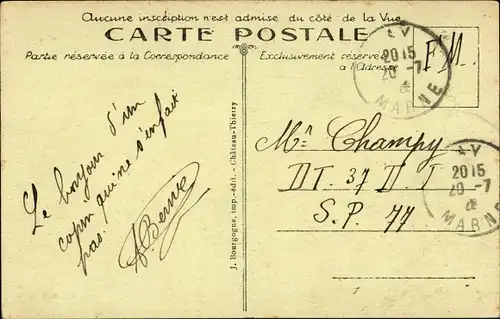 Aucune inscription n'est admise du côté de la Vue
CARTE POSTALE
Partie réservée à la Correspondance
Exclusivement réservée
à l'Adresse
F.M.
2015
20-7
MARNE
Le bonjour d'un
copin qui ne s'en fait
pas.
J. Bourgogne, imp.-édit. - Château-Thierry
Mr Champy
DT. 37 D.I
S.P. 77
2015
20-7
MARNE